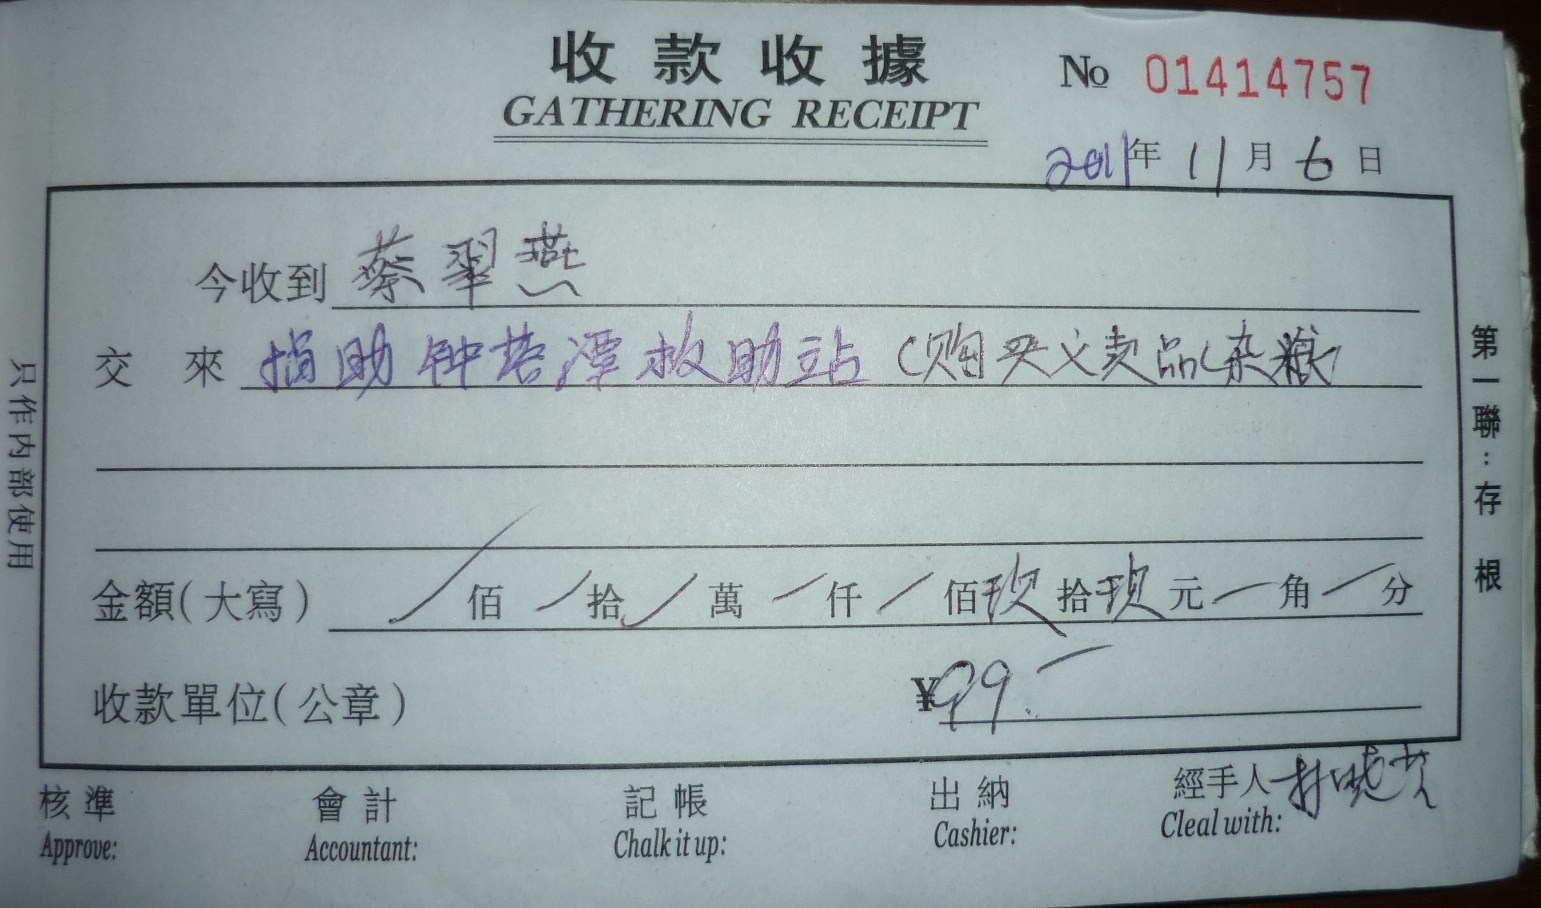 收款收據
GATHERING RECEIPT
№ 01414757
2011年11月6日
今收到 蔡翠燕
交來 捐助钟落潭救助站（购买义卖品（杂粮）
金額(大寫) / 佰 / 拾 / 萬 / 仟 / 佰 玖 拾 玖 元 / 角 / 分
收款單位(公章) ¥99.—
核準 會計 記帳 出納 經手人 林晓
Approve: Accountant: Chalk it up: Cashier: Cleal with:
只作内部使用
第一聯:存根